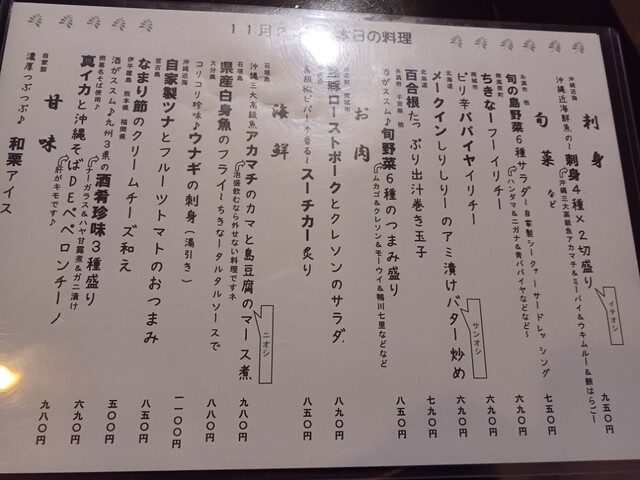 本日の料理
刺身
沖縄近海
沖縄近海鮮魚の〜刺身4種×2切盛り 九五〇円
沖縄三大高級魚アカマチ&ミーバイ&ウキムルー&鯛はらごー
イチオシ
旬菜
など
糸満市 他
旬の島野菜6種サラダ〜自家製シークァーサードレッシング 七五〇円
ハンダマ&ニガナ&青パパイヤなどなど〜
南風原町
ちきなーフーイリチー 六九〇円
南城市
ピリ辛パパイヤイリチー 六九〇円
北海道
メークインしりしりーのアミ漬けバター炒め 六九〇円
サンオシ
北海道
百合根たっぷり出汁巻き玉子 七九〇円
糸満市 千葉県 他
酒がススム♪旬野菜6種のつまみ盛り 八五〇円
ムカゴ&クレソン&モーウイ&鴨川七里などなど
お肉
南城市
ローストポークとクレソンのサラダ 八九〇円
香る〜スーチカー炙り 八五〇円
海鮮
石垣島
沖縄三大高級魚アカマチのカマと島豆腐のマース煮 九八〇円
泡盛飲むなら外せない料理ですネ
ニオシ
石垣島
県産白身魚のフライ〜ちきなータルタルソースで 八八〇円
大分県
コリコリ珍味♪ウナギの刺身(湯引き) 一一〇〇円
沖縄近海
自家製ツナとフルーツトマトのおつまみ 八八〇円
宮古島
なまり節のクリームチーズ和え 八五〇円
伊平屋島 熊本県 福岡県
酒がススム♪九州3県の酒肴珍味3種盛り 五〇〇円
チーガラス&ハヤ甘露煮&ガニ漬け
照喜名そば使用♪
真イカと沖縄そばDEペペロンチーノ 六九〇円
肝がキモです♪
甘味
自家製
濃厚つぶつぶ♪和栗アイス 九八〇円